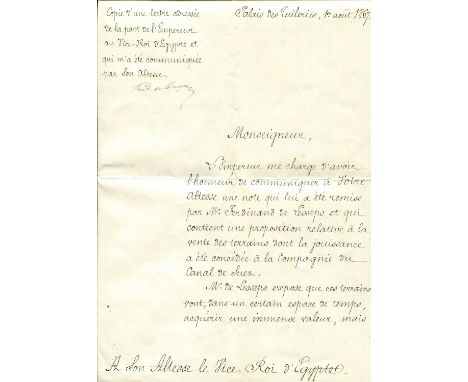 Copie d'une lettre adressée
de la part de l'Empereur
au Vice-Roi d'Egypte et
qui m'a été communiquée
par Son Altesse.
Palais des Tuileries, 1er août 1867.
Monseigneur,
L'Empereur me charge d'avoir
l'honneur de communiquer à Votre
Altesse une note qui lui a été remise
par Mr. Ferdinand de Lesseps et qui
contient une proposition relative à la
vente des terrains dont la jouissance
a été concédée à la Compagnie du
Canal de Suez.
Mr. de Lesseps expose que ces terrains
vont, dans un certain espace de temps,
acquérir une immense valeur, mais
A Son Altesse le Vice Roi d'Egypte.